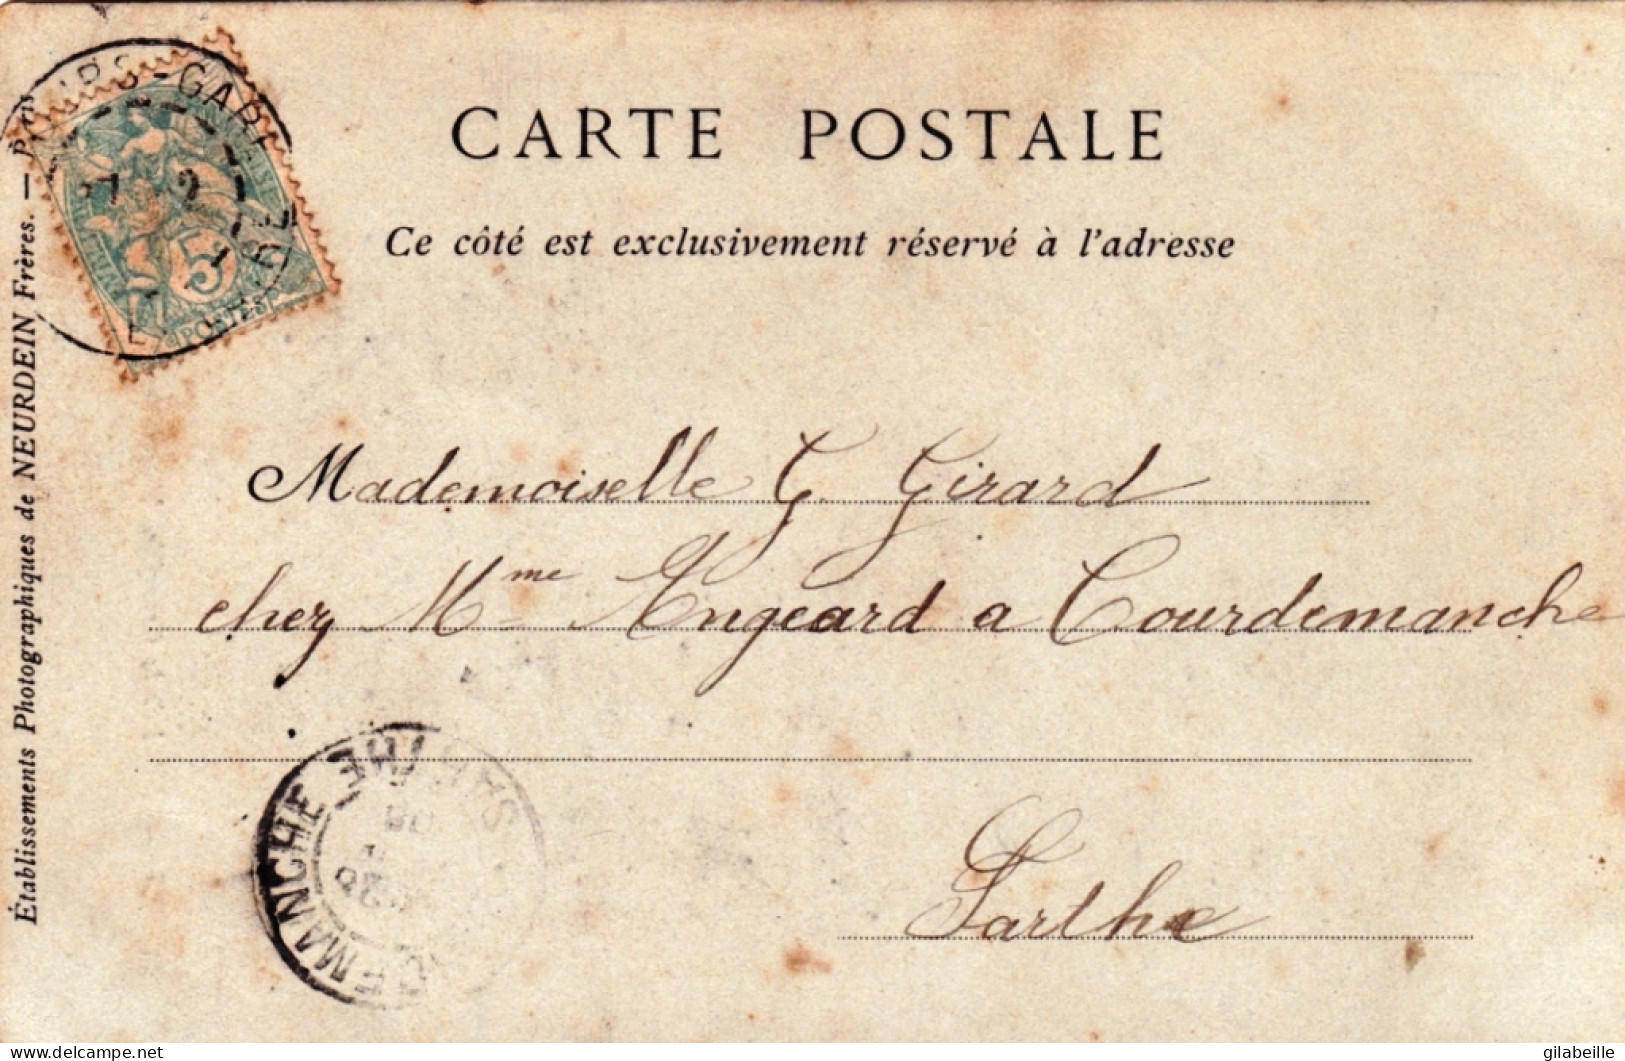 CARTE POSTALE
Ce côté est exclusivement réservé à l'adresse
Mademoiselle G. Girard
chez Mme Angeard a Courdemanche
Sarthe
Établissements Photographiques de NEURDEIN Frères. — Paris
-GARE
5
POSTES
SARTHE
MANCHE
delcampe.net
gilabeille